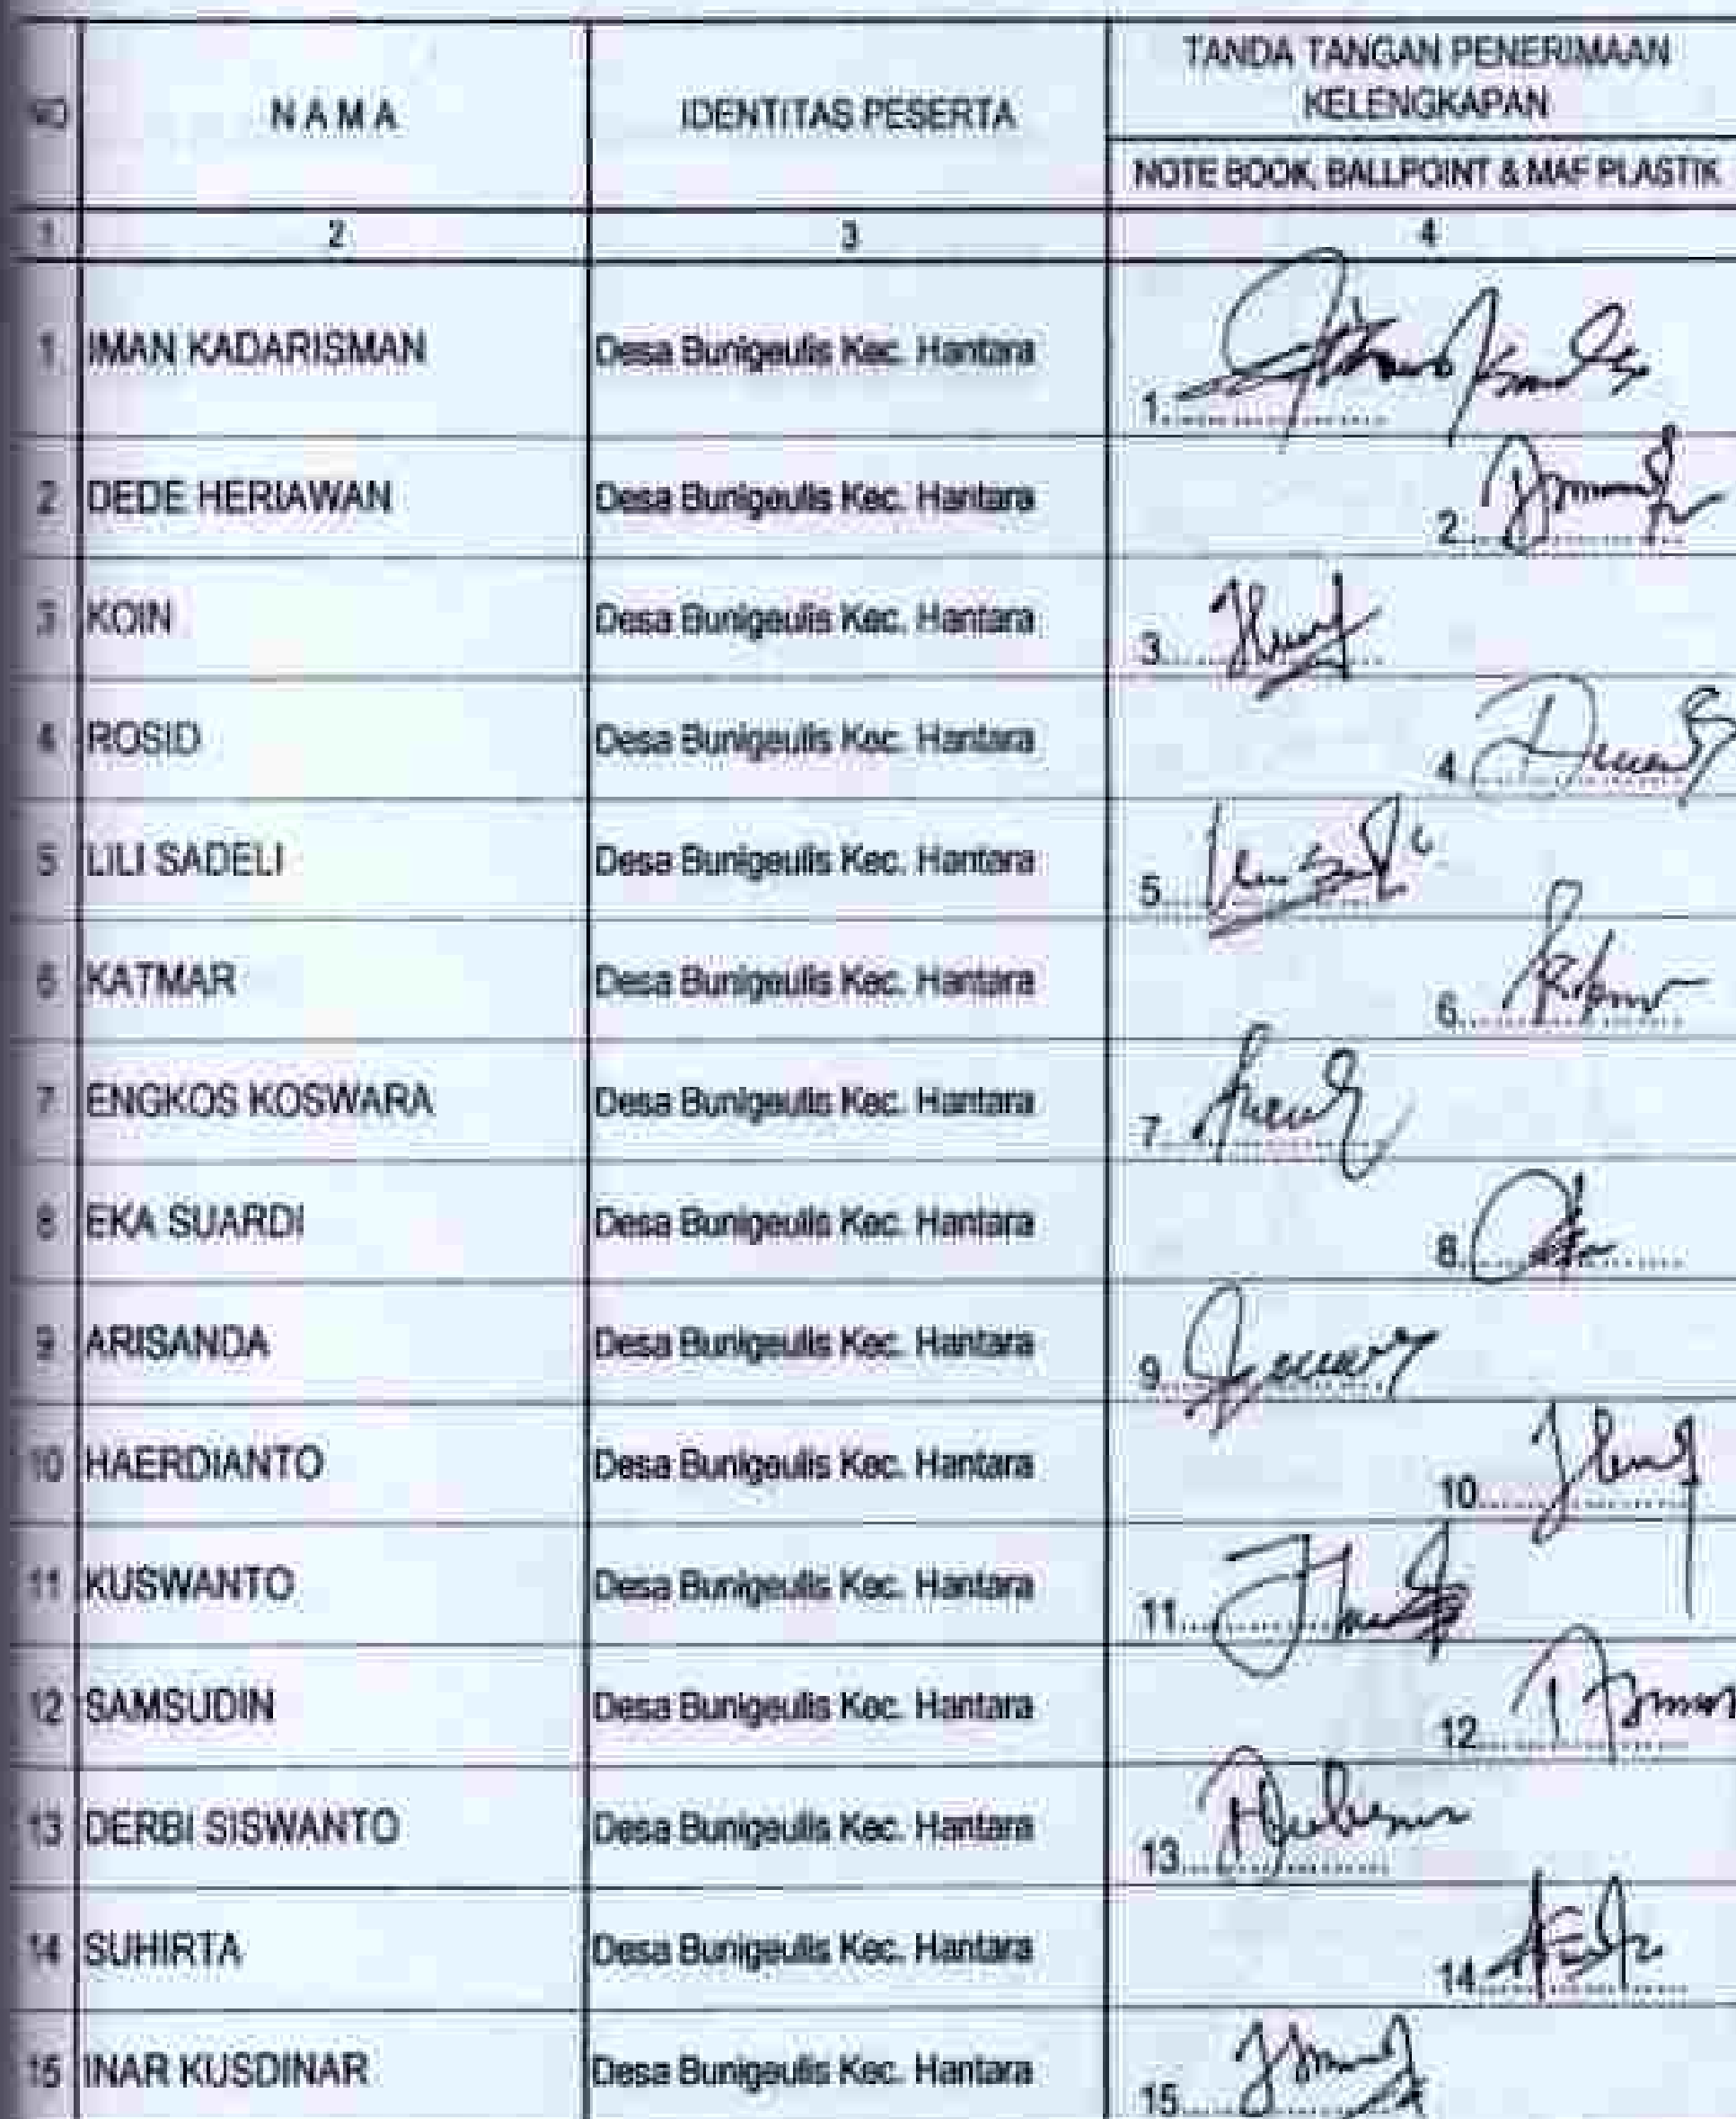 NO NAMA IDENTITAS PESERTA TANDA TANGAN PENERIMAAN
KELENGKAPAN
NOTE BOOK, BALLPOINT & MAF PLASTIK
1 2 3 4
1 IMAN KADARISMAN Desa Bunigeulis Kec. Hantara 1
2 DEDE HERIAWAN Desa Bunigeulis Kec. Hantara 2
3 KOIN Desa Bunigeulis Kec. Hantara 3
4 ROSID Desa Bunigeulis Kec. Hantara 4
5 LILI SADELI Desa Bunigeulis Kec. Hantara 5
6 KATMAR Desa Bunigeulis Kec. Hantara 6
7 ENGKOS KOSWARA Desa Bunigeulis Kec. Hantara 7
8 EKA SUARDI Desa Bunigeulis Kec. Hantara 8
9 ARISANDA Desa Bunigeulis Kec. Hantara 9
10 HAERDIANTO Desa Bunigeulis Kec. Hantara 10
11 KUSWANTO Desa Bunigeulis Kec. Hantara 11
12 SAMSUDIN Desa Bunigeulis Kec. Hantara 12
13 DERBI SISWANTO Desa Bunigeulis Kec. Hantara 13
14 SUHIRTA Desa Bunigeulis Kec. Hantara 14
15 INAR KUSDINAR Desa Bunigeulis Kec. Hantara 15